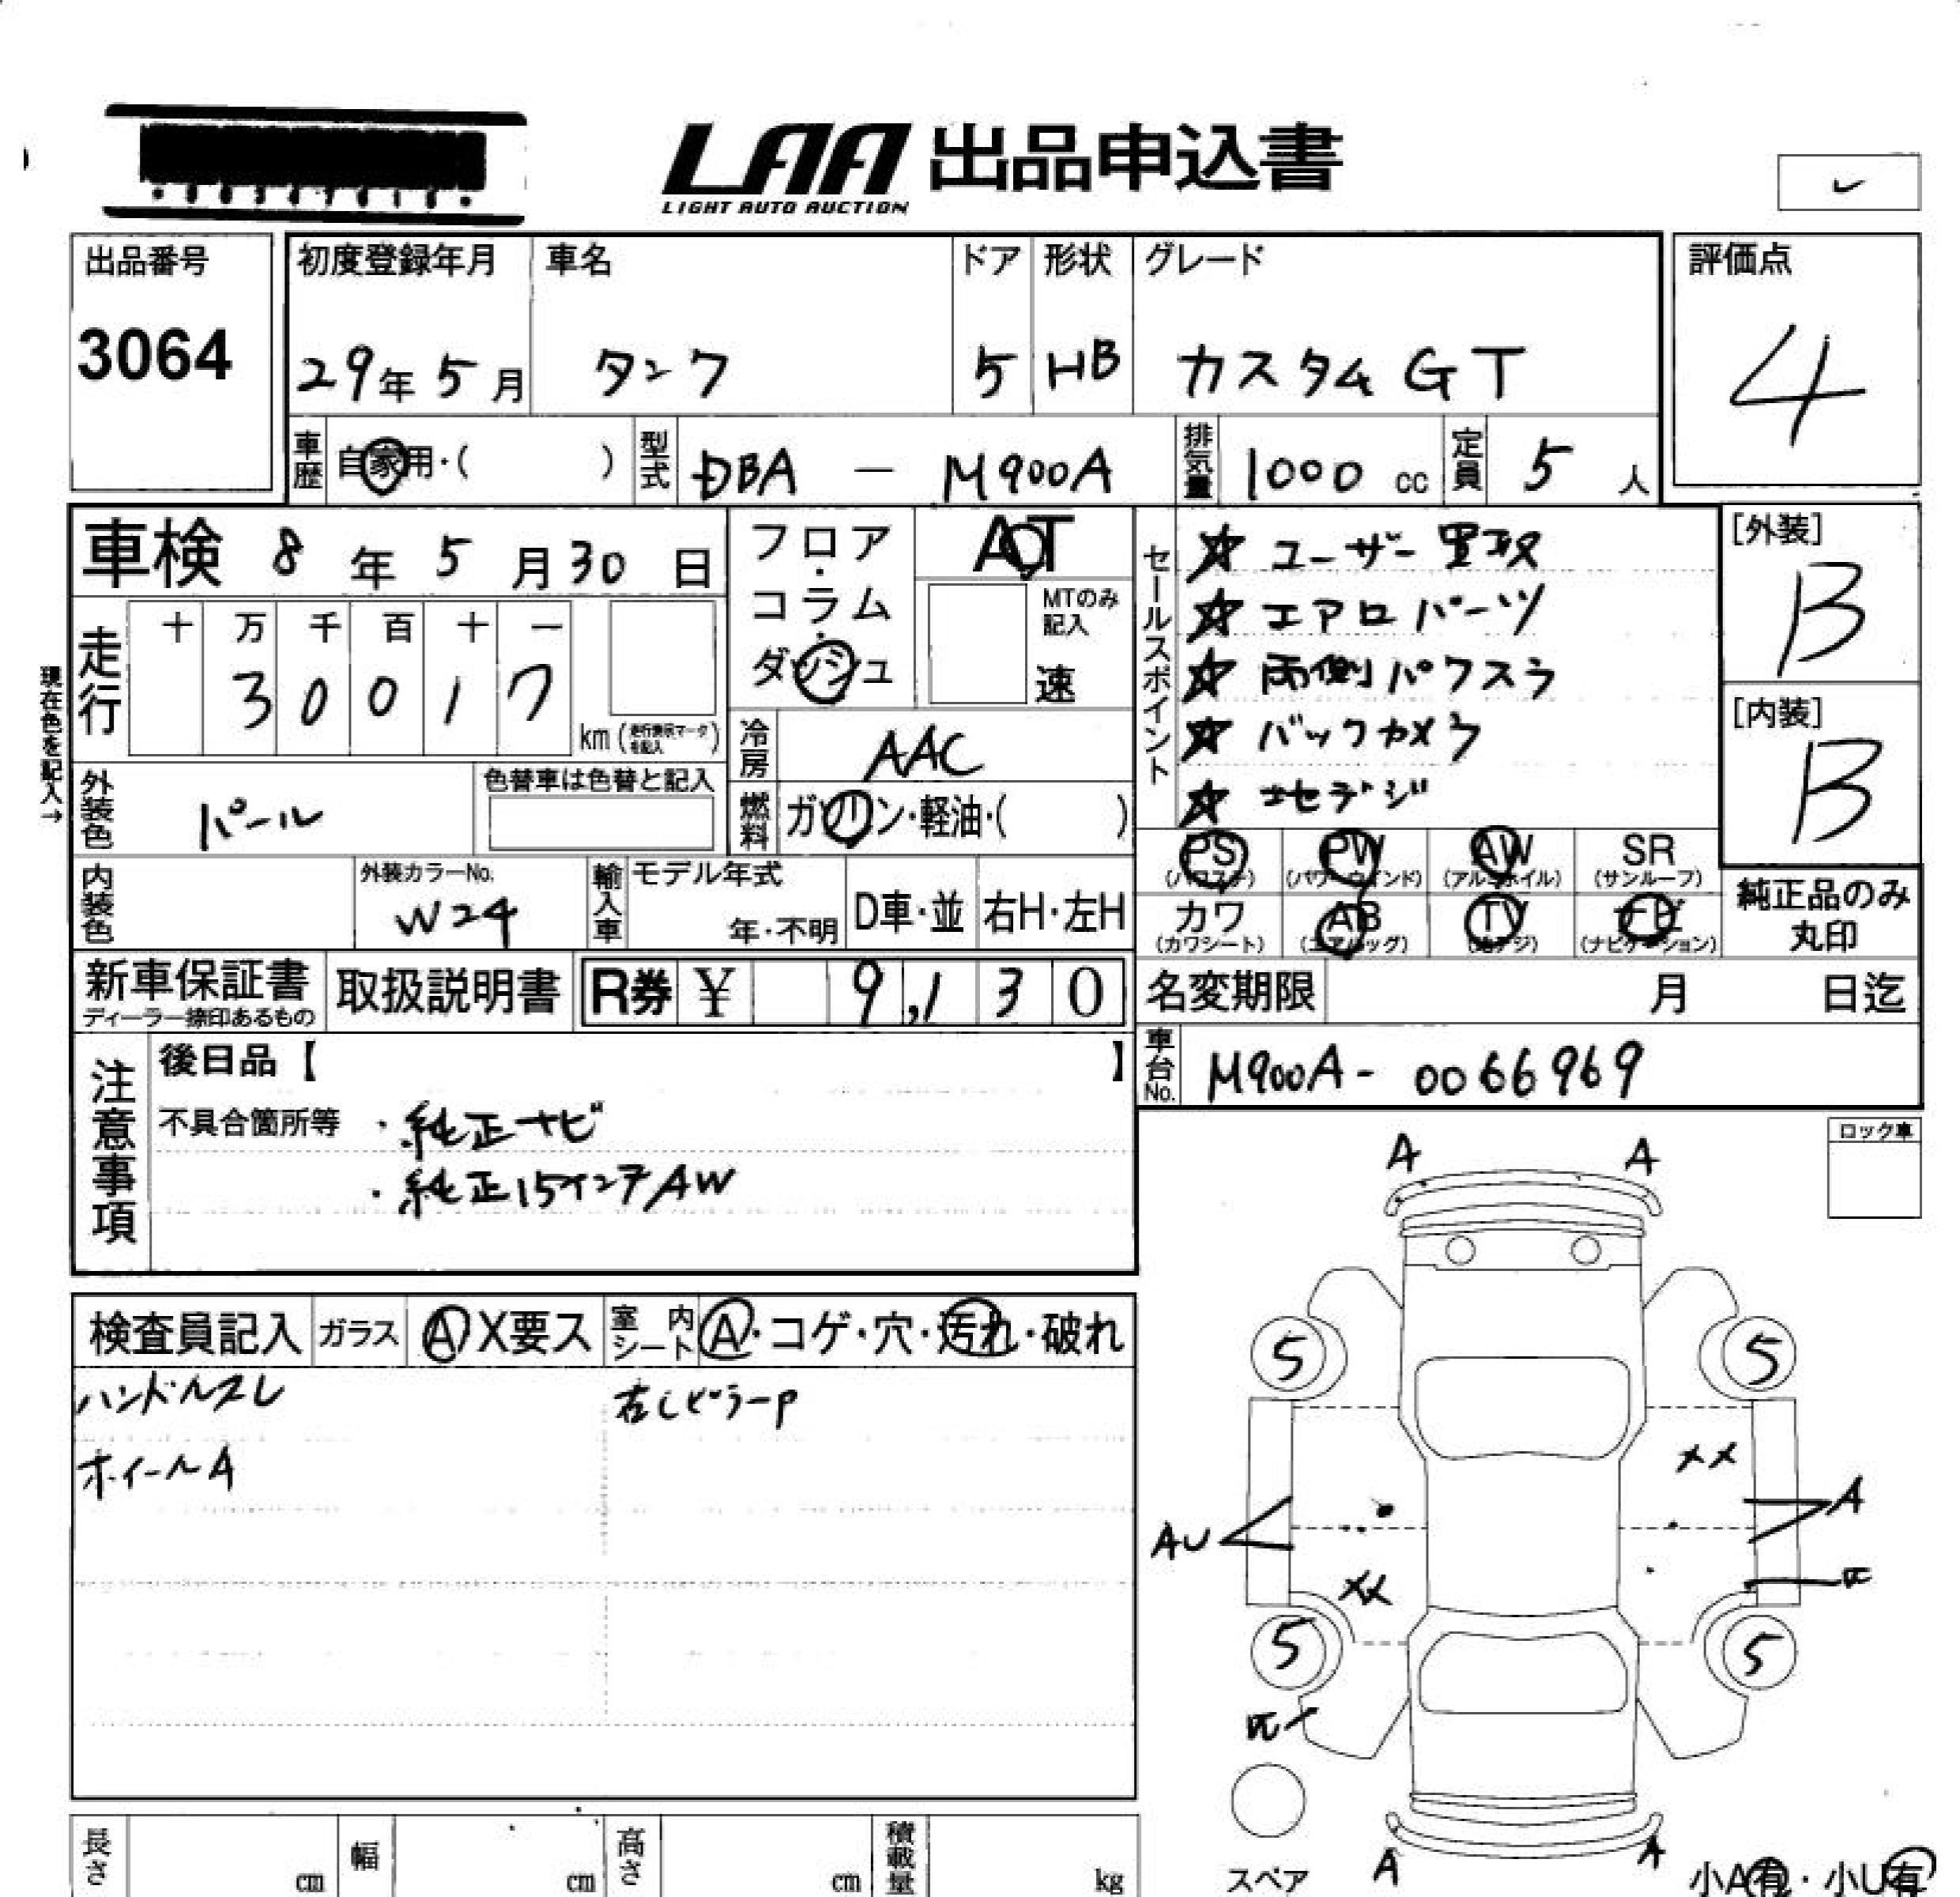 LAA 出品申込書
LIGHT AUTO AUCTION
出品番号 初度登録年月 車名 ドア 形状 グレード 評価点
3064 29年5月 タンク 5 HB カスタム GT 4
車歴 自家用・( ) 型式 DBA - M900A 排気量 1000 cc 定員 5 人
車検 8年5月30日
フロア・コラム・ダッシュ
AT
MTのみ記入
速
セールスポイント
☆ ユーザー買取
☆ エアロパーツ
☆ 両側パワスラ
☆ バックカメラ
☆ エセデジ
[外装]
B
[内装]
B
現在色を記入→
走行 十 万 千 百 十 一
3 0 0 1 7 km (走行換算マークを記入)
冷房 AAC
外装色 パール 色替車は色替と記入
燃料 ガソリン・軽油・( )
PS (パワステ) PW (パワーウィンド) AW (アルミホイル) SR (サンルーフ)
カワ (カワシート) AB (エアバッグ) TV (地デジ) ナビ (ナビゲーション)
純正品のみ丸印
内装色 外装カラーNo. W24 輸入車 モデル年式 年・不明 D車・並 右H・左H
新車保証書 ディーラー捺印あるもの 取扱説明書 R券 ¥ 9,130
名変期限 月 日迄
車台No. M900A- 0066969
注意事項
後日品【 】
不具合箇所等 ・純正ナビ
・純正15インチAW
ロック車
検査員記入 ガラス A X要ス 室内シート A・コゲ・穴・汚れ・破れ
ハンドルスレ 右CピラーP
ホイールA
A A
5 5
XX
A
AU
XX
5 5
A A
スペア
小A有・小U有
長さ cm 幅 cm 高さ cm 積載量 kg